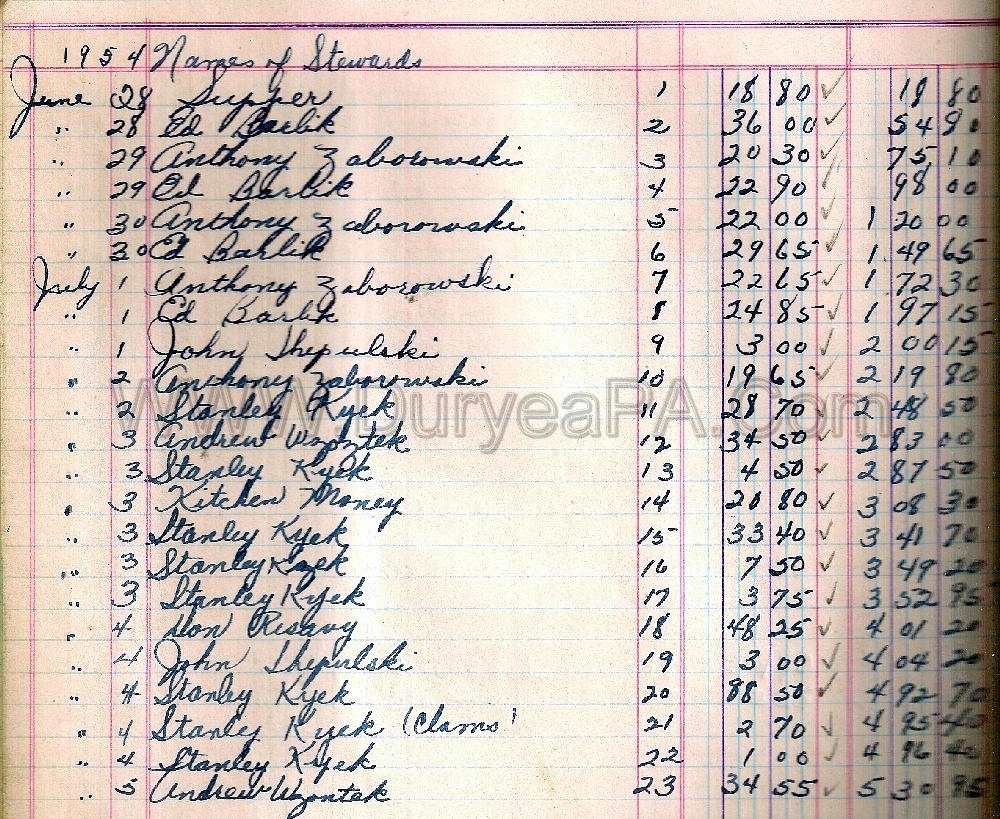 1954 Names of Stewards
June 28 Supper 1 18 80 ✓ 18 80
" 28 Ed Barlik 2 36 00 ✓ 54 80
" 29 Anthony Zaborowski 3 20 30 ✓ 75 10
" 29 Ed Barlik 4 22 90 ✓ 98 00
" 30 Anthony Zaborowski 5 22 00 ✓ 1 20 00
" 30 Ed Barlik 6 29 65 ✓ 1 49 65
July 1 Anthony Zaborowski 7 22 65 ✓ 1 72 30
" 1 Ed Barlik 8 24 85 ✓ 1 97 15
" 1 John Shepulski 9 3 00 ✓ 2 00 15
" 2 Anthony Zaborowski 10 19 65 ✓ 2 19 80
www.DuryeaPA.Com
" 2 Stanley Kyek 11 28 70 ✓ 2 48 50
" 3 Andrew Wzontek 12 34 50 ✓ 2 83 00
" 3 Stanley Kyek 13 4 50 ✓ 2 87 50
" 3 Kitchen Money 14 20 80 ✓ 3 08 30
" 3 Stanley Kyek 15 33 40 ✓ 3 41 70
" 3 Stanley Kyek 16 7 50 ✓ 3 49 20
" 3 Stanley Kyek 17 3 75 ✓ 3 52 95
" 4 Don Resavy 18 48 25 ✓ 4 01 20
" 4 John Shepulski 19 3 00 ✓ 4 04 20
" 4 Stanley Kyek 20 88 50 ✓ 4 92 70
" 4 Stanley Kyek (Clams) 21 2 70 ✓ 4 95 40
" 4 Stanley Kyek 22 1 00 ✓ 4 96 40
" 5 Andrew Wzontek 23 34 55 ✓ 5 30 95